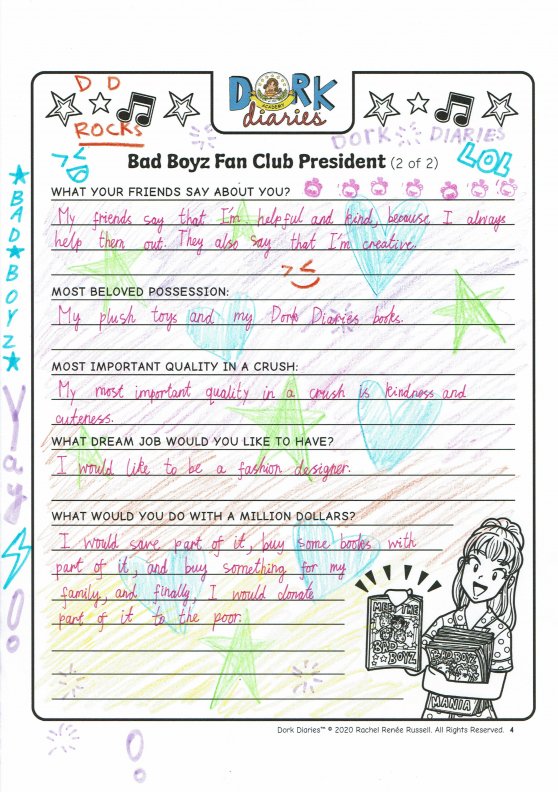 D D
ROCKS
DORK
ACADEMY
diaries
DORK DIARIES
LOL
Bad Boyz Fan Club President (2 of 2)
WHAT YOUR FRIENDS SAY ABOUT YOU?
My friends say that I'm helpful and kind, because I always
help them out. They also say that I'm creative.
MOST BELOVED POSSESSION:
My plush toys and my Dork Diaries books.
MOST IMPORTANT QUALITY IN A CRUSH:
My most important quality in a crush is kindness and
cuteness.
WHAT DREAM JOB WOULD YOU LIKE TO HAVE?
I would like to be a fashion designer.
WHAT WOULD YOU DO WITH A MILLION DOLLARS?
I would save part of it, buy some books with
part of it, and buy something for my
family, and finally, I would donate
part of it to the poor.
BAD BOYZ
Yay
MEET THE
BAD
BOYZ
BAD BOYZ
MANIA
Dork Diaries™ © 2020 Rachel Renée Russell. All Rights Reserved. 4